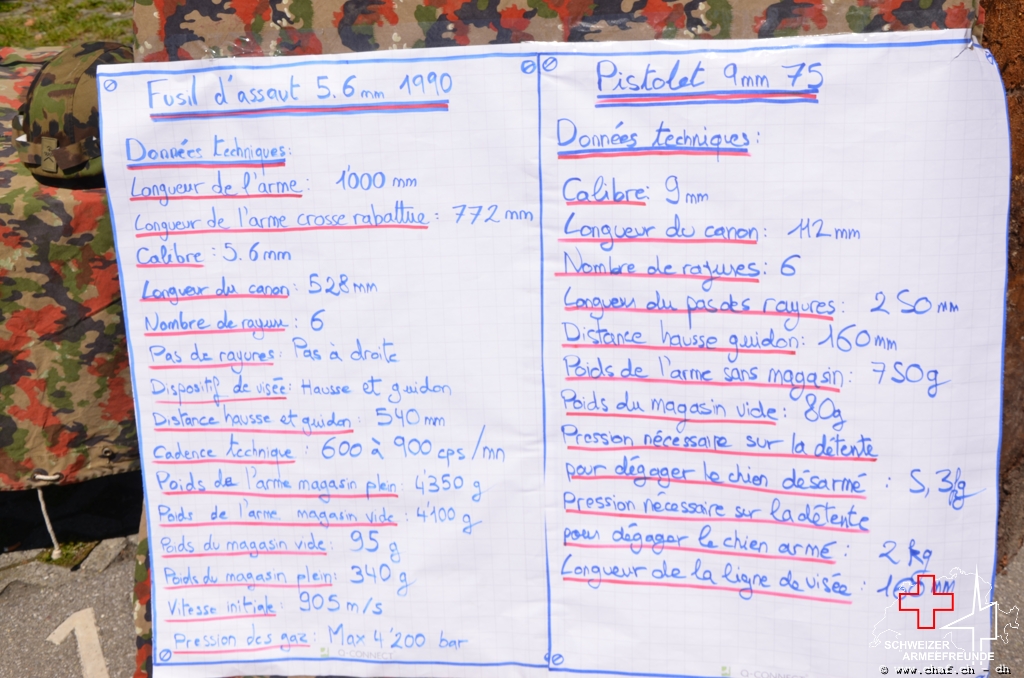 Fusil d'assaut 5.6mm 1990
Données techniques:
Longueur de l'arme: 1'000 mm
Longueur de l'arme crosse rabattue: 772 mm
Calibre: 5.6mm
Longueur du canon: 528mm
Nombre de rayure: 6
Pas de rayures: Pas à droite
Dispositif de visée: Hausse et guidon
Distance hausse et guidon: 540 mm
Cadence technique: 600 à 900 cps/mn
Poids de l'arme magasin plein: 4'350 g
Poids de l'arme magasin vide: 4'100 g
Poids du magasin vide: 95 g
Poids du magasin plein: 340 g
Vitesse initiale: 905 m/s
Pression des gaz: Max 4'200 bar
Q-CONNECT
Pistolet 9mm 75
Données techniques:
Calibre: 9mm
Longueur du canon: 112 mm
Nombre de rayures: 6
Longueur du pas des rayures: 250 mm
Distance hausse guidon: 160mm
Poids de l'arme sans magasin: 750g
Poids du magasin vide: 80g
Pression nécessaire sur la détente
pour dégager le chien désarmé : 5,3kg
Pression nécessaire sur la détente
pour dégager le chien armé: 2 kg
Longueur de la ligne de visée: 160 mm
Q-CONNECT
1
SCHWEIZER
ARMEEFREUNDE
© www.chaf.ch - dh